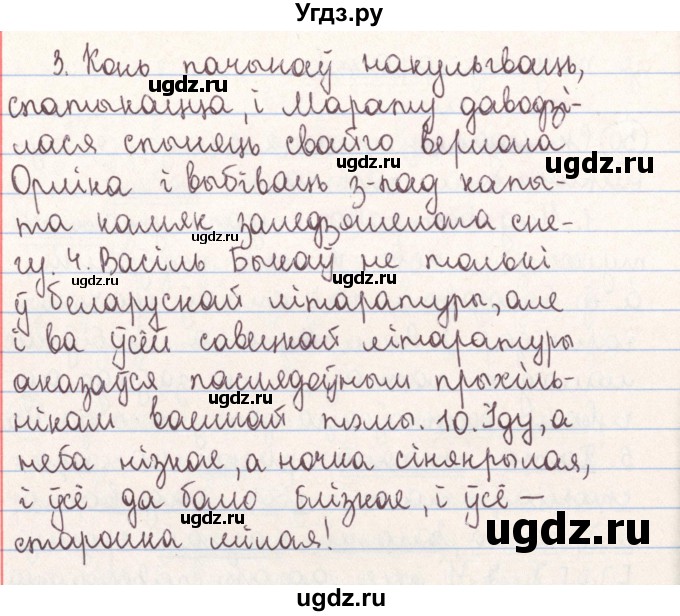 Угдз.ру
3. Конь пачынаў накульгваць,
спатыкацца, і Марату даводзі-
лася спыняць свайго вернага
Орліка і выбіваць з-пад капы-
та камяк заледзянелага сне-
гу. 4. Васіль Быкаў не толькі
ў беларускай літаратуры, але
і ва ўсёй савецкай літаратуры
аказаўся паслядоўным прыхіль-
нікам ваеннай тэмы. 10. Іду, а
неба нізкае, а ночка сінякрылая,
і ўсё да балю блізкае, і ўсё —
старонка мілая!
ugdz.ru
ugdz.ru
ugdz.ru
ugdz.ru
ugdz.ru
ugdz.ru
ugdz.ru
ugdz.ru
ugdz.ru
ugdz.ru
ugdz.ru
ugdz.ru
ugdz.ru